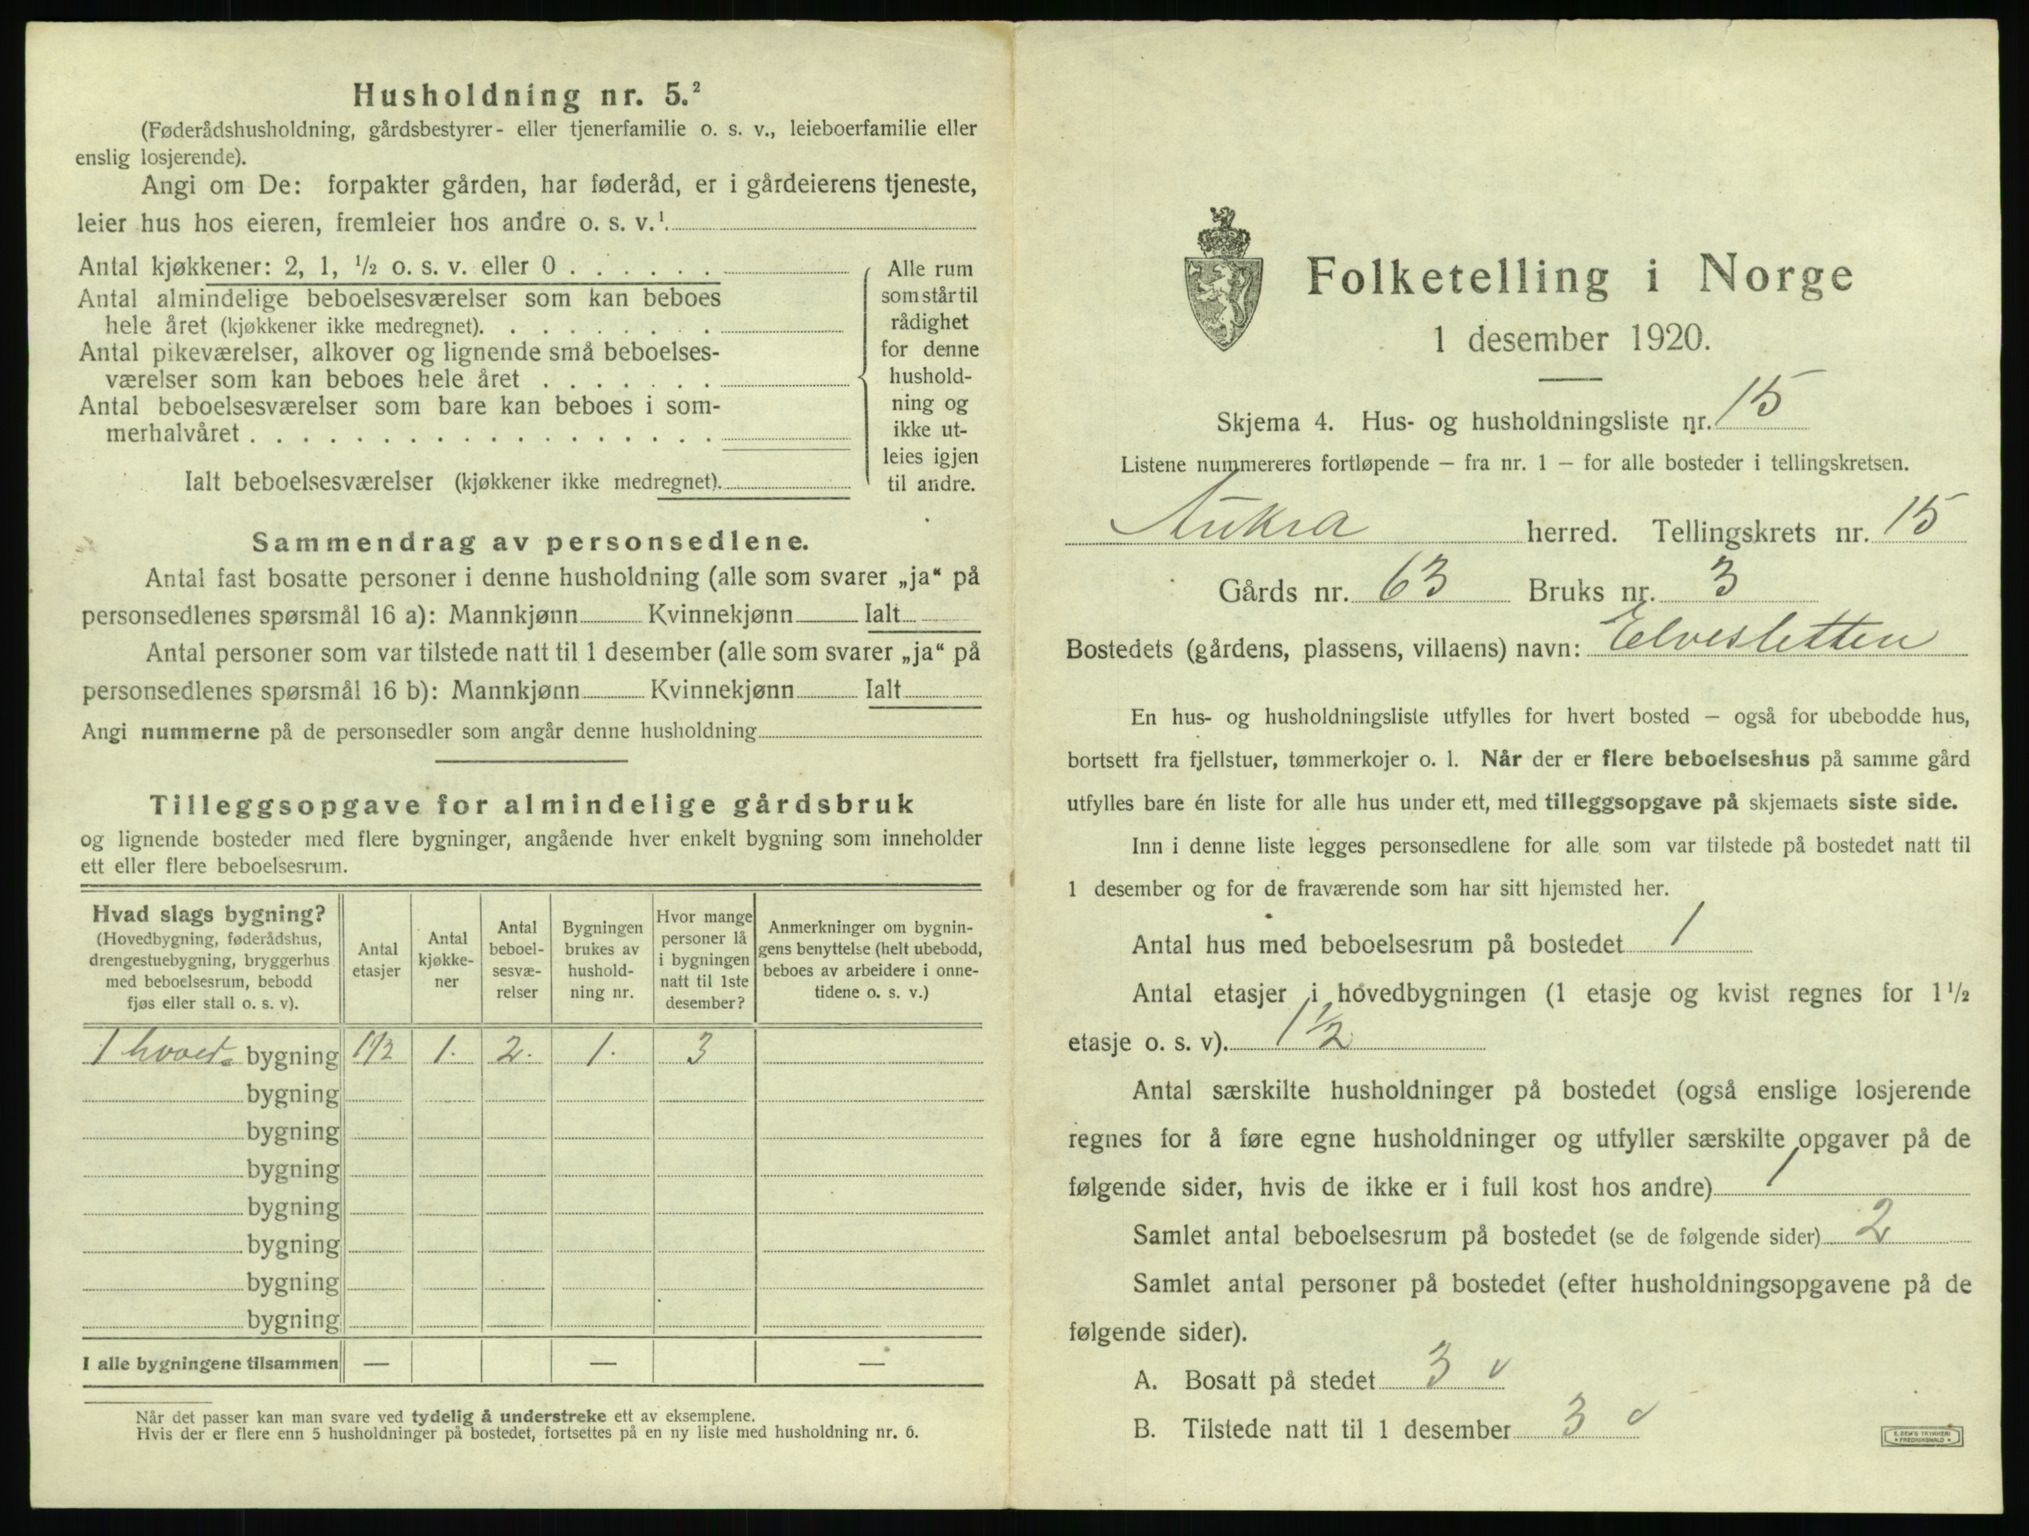 Husholdning nr. 5.²
(Føderådshusholdning, gårdsbestyrer- eller tjenerfamilie o. s. v., leieboerfamilie eller
enslig losjerende).
Angi om De: forpakter gården, har føderåd, er i gårdeierens tjeneste,
leier hus hos eieren, fremleier hos andre o. s. v.¹
Antal kjøkkener: 2, 1, ½ o. s. v. eller 0
Antal almindelige beboelsesværelser som kan beboes
hele året (kjøkkener ikke medregnet)
Antal pikeværelser, alkover og lignende små beboelses-
værelser som kan beboes hele året
Antal beboelsesværelser som bare kan beboes i som-
merhalvåret
Ialt beboelsesværelser (kjøkkener ikke medregnet)
Alle rum
som står til
rådighet
for denne
hushold-
ning og
ikke ut-
leies igjen
til andre.
Sammendrag av personsedlene.
Antal fast bosatte personer i denne husholdning (alle som svarer „ja“ på
personsedlenes spørsmål 16 a): Mannkjønn Kvinnekjønn Ialt
Antal personer som var tilstede natt til 1 desember (alle som svarer „ja“ på
personsedlenes spørsmål 16 b): Mannkjønn Kvinnekjønn Ialt
Angi nummerne på de personsedler som angår denne husholdning
Tilleggsopgave for almindelige gårdsbruk
og lignende bosteder med flere bygninger, angående hver enkelt bygning som inneholder
ett eller flere beboelsesrum.
Hvad slags bygning?
(Hovedbygning, føderådshus,
drengestuebygning, bryggerhus
med beboelsesrum, bebodd
fjøs eller stall o. s. v).
Antal
etasjer
Antal
kjøkke-
ner
Antal
beboel-
sesvæ-
relser
Bygningen
brukes av
hushold-
ning nr.
Hvor mange
personer lå
i bygningen
natt til 1ste
desember?
Anmerkninger om bygnin-
gens benyttelse (helt ubebodd,
beboes av arbeidere i onne-
tidene o. s. v.)
1 hoved- bygning 1½ 1. 2. 1. 3
bygning
bygning
bygning
bygning
bygning
bygning
bygning
I alle bygningene tilsammen — — —
Når det passer kan man svare ved tydelig å understreke ett av eksemplene.
Hvis der er flere enn 5 husholdninger på bostedet, fortsettes på en ny liste med husholdning nr. 6.
Folketelling i Norge
1 desember 1920.
Skjema 4. Hus- og husholdningsliste nr. 15
Listene nummereres fortløpende – fra nr. 1 – for alle bosteder i tellingskretsen.
Aukra herred. Tellingskrets nr. 15
Gårds nr. 63 Bruks nr. 3
Bostedets (gårdens, plassens, villaens) navn: Elvesletten
En hus- og husholdningsliste utfylles for hvert bosted – også for ubebodde hus,
bortsett fra fjellstuer, tømmerkojer o. l. Når der er flere beboelseshus på samme gård
utfylles bare én liste for alle hus under ett, med tilleggsopgave på skjemaets siste side.
Inn i denne liste legges personsedlene for alle som var tilstede på bostedet natt til
1 desember og for de fraværende som har sitt hjemsted her.
Antal hus med beboelsesrum på bostedet 1
Antal etasjer i hovedbygningen (1 etasje og kvist regnes for 1½
etasje o. s. v). 1½
Antal særskilte husholdninger på bostedet (også enslige losjerende
regnes for å føre egne husholdninger og utfyller særskilte opgaver på de
følgende sider, hvis de ikke er i full kost hos andre) 1
Samlet antal beboelsesrum på bostedet (se de følgende sider) 2
Samlet antal personer på bostedet (efter husholdningsopgavene på de
følgende sider).
A. Bosatt på stedet 3 v
B. Tilstede natt til 1 desember 3 v